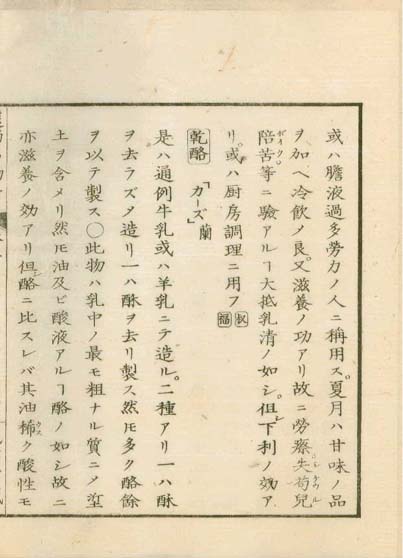 或ハ膽液過多勞力ノ人ニ稱用ス。夏月ハ甘味ノ品
ヲ加ヘ冷飲ノ良。又滋養ノ功アリ故ニ勞瘵失苟兒
陪苦等ニ驗アルヿ大抵乳清ノ如シ。但シ下利ノ効ア
リ。或ハ厨房調理ニ用フ 叔 福
乾酪 「カーズ」蘭
是ハ通例牛乳或ハ羊乳ニテ造ル。二種アリ一ハ酥
ヲ去ラズノ造リ一ハ酥ヲ去リ製ス然ㇳモ多ク酪餘
ヲ以テ製ス〇此物ハ乳中ノ最モ粗ナル質ニノ
土ヲ含メリ然ㇳモ油及ビ酸液アルヿ酪ノ如シ故ニ
亦滋養ノ効アリ但酪ニ比スレバ其油稀ク酸性モ